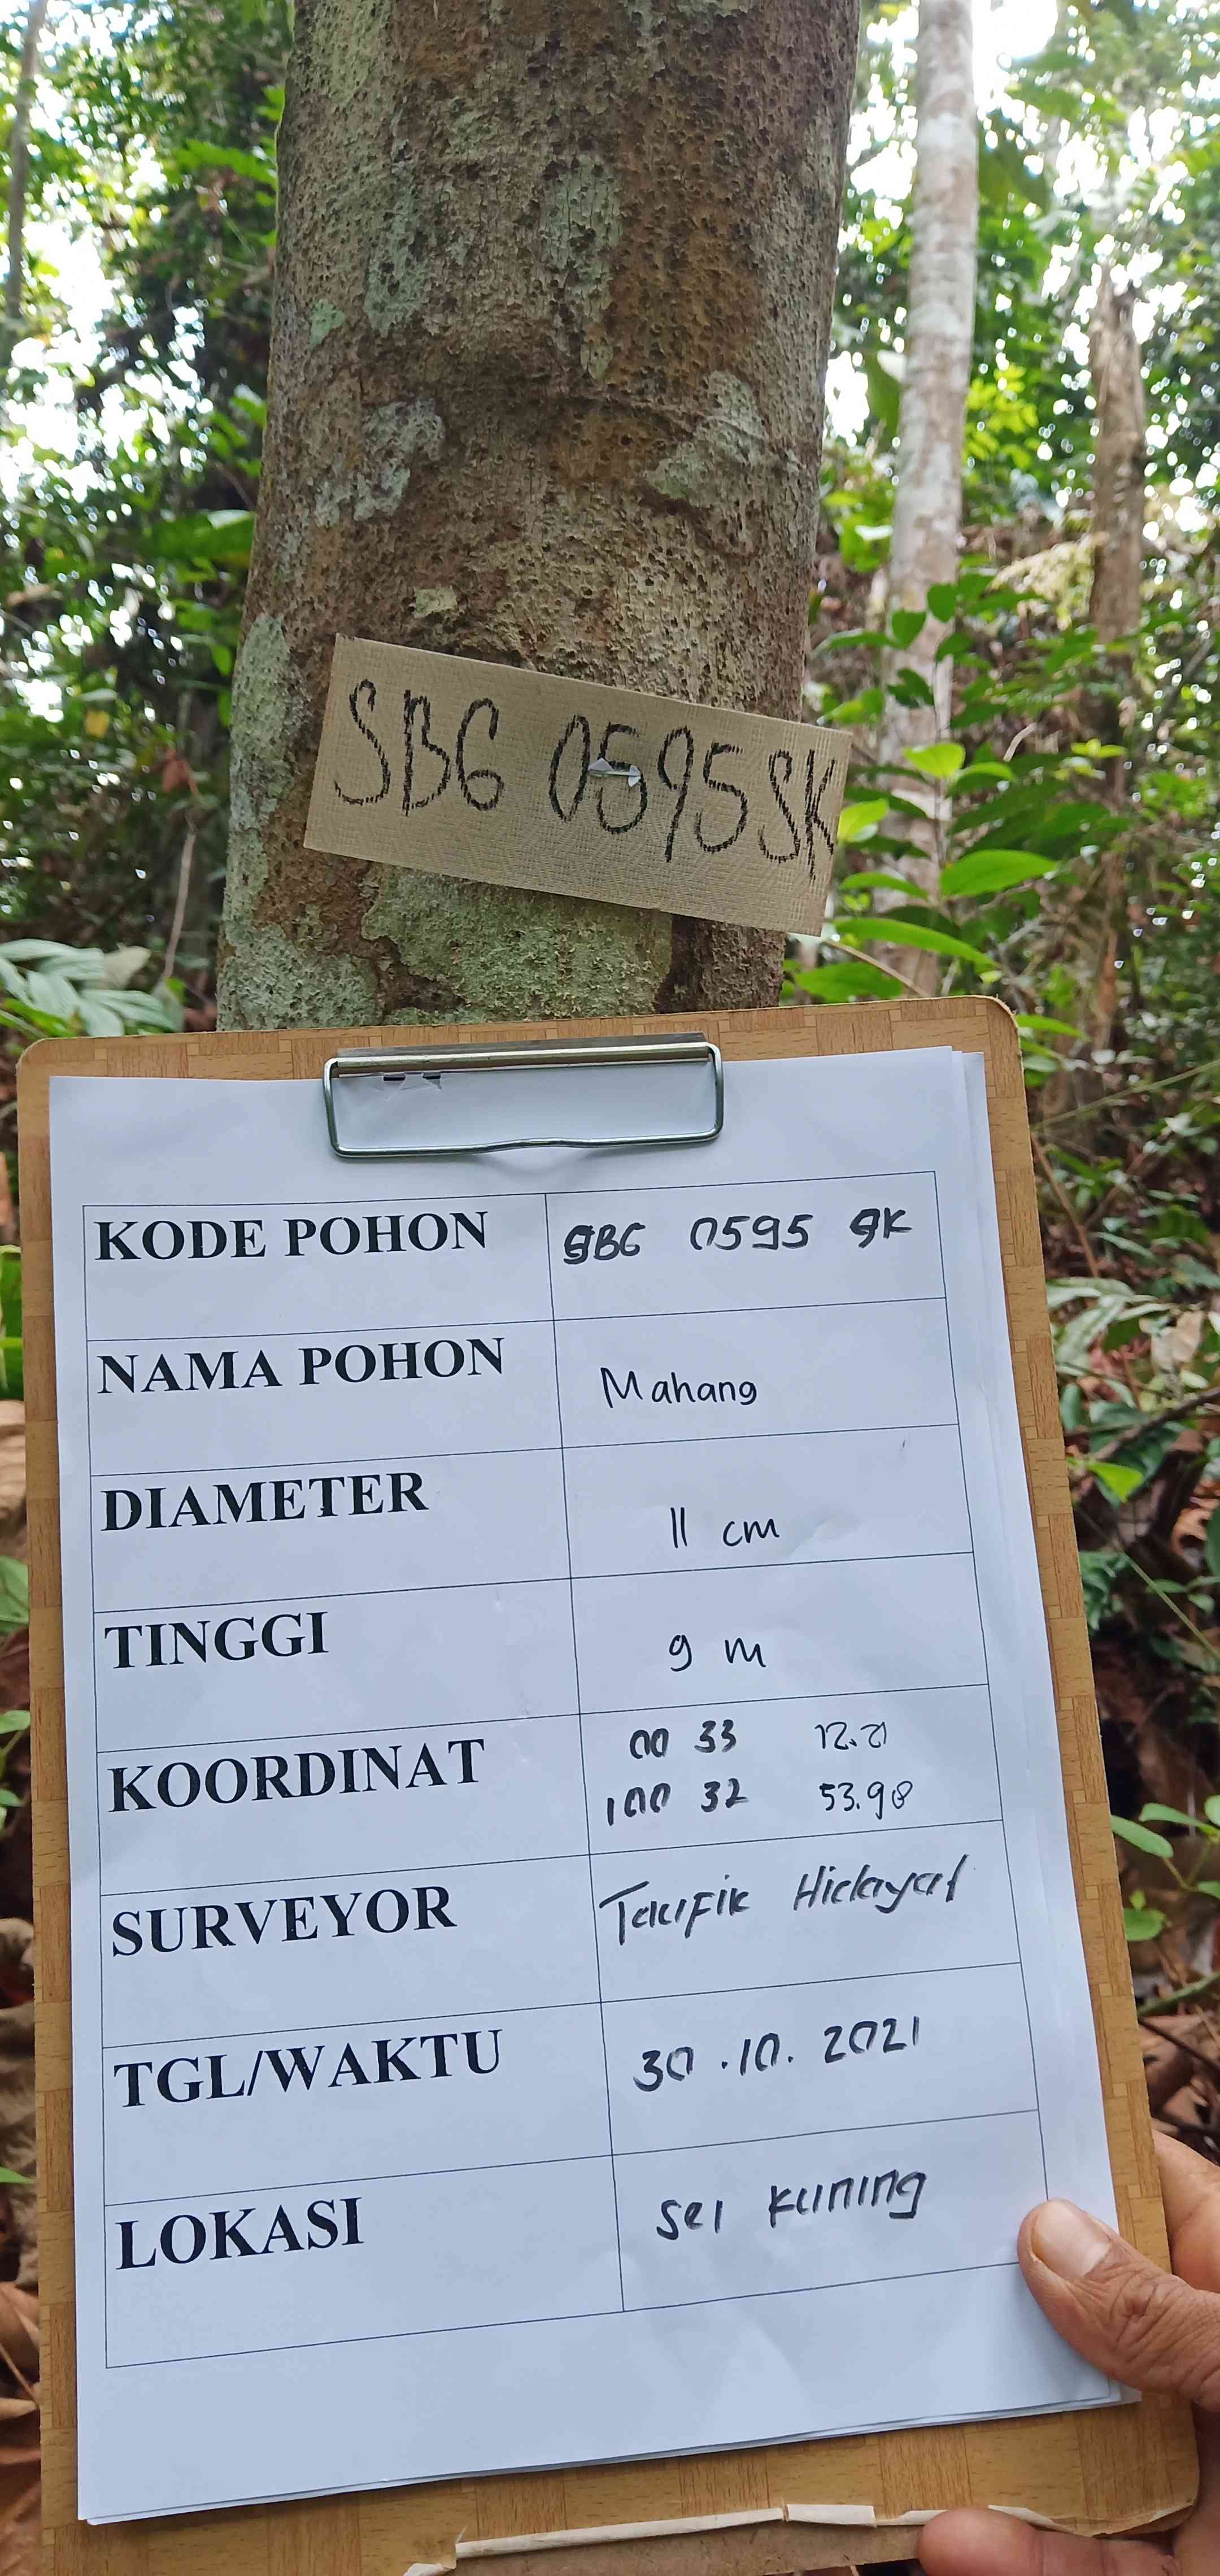 SBG 0595 SK
KODE POHON SBG 0595 SK
NAMA POHON Mahang
DIAMETER 11 cm
TINGGI 9 m
KOORDINAT 00 33
100 32 53.98
SURVEYOR Taufik Hidayat
TGL/WAKTU 30.10.2021
LOKASI Sei Kuning